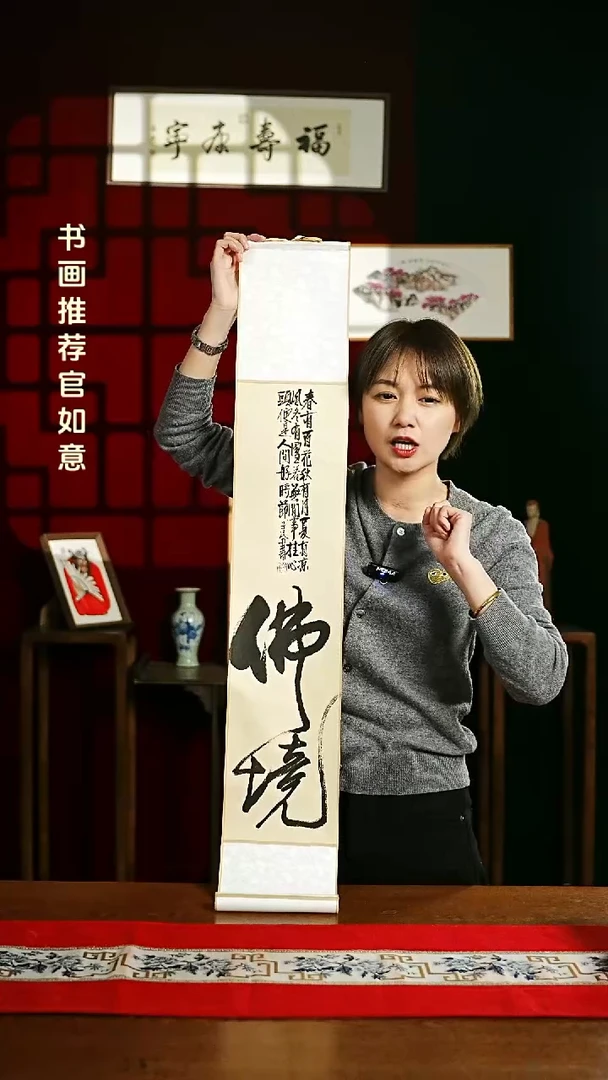 福壽康寧
书画推荐官如意
春有百花秋有月夏有凉
風冬有雪若無閒事挂心
頭便是人間好時節
佛境